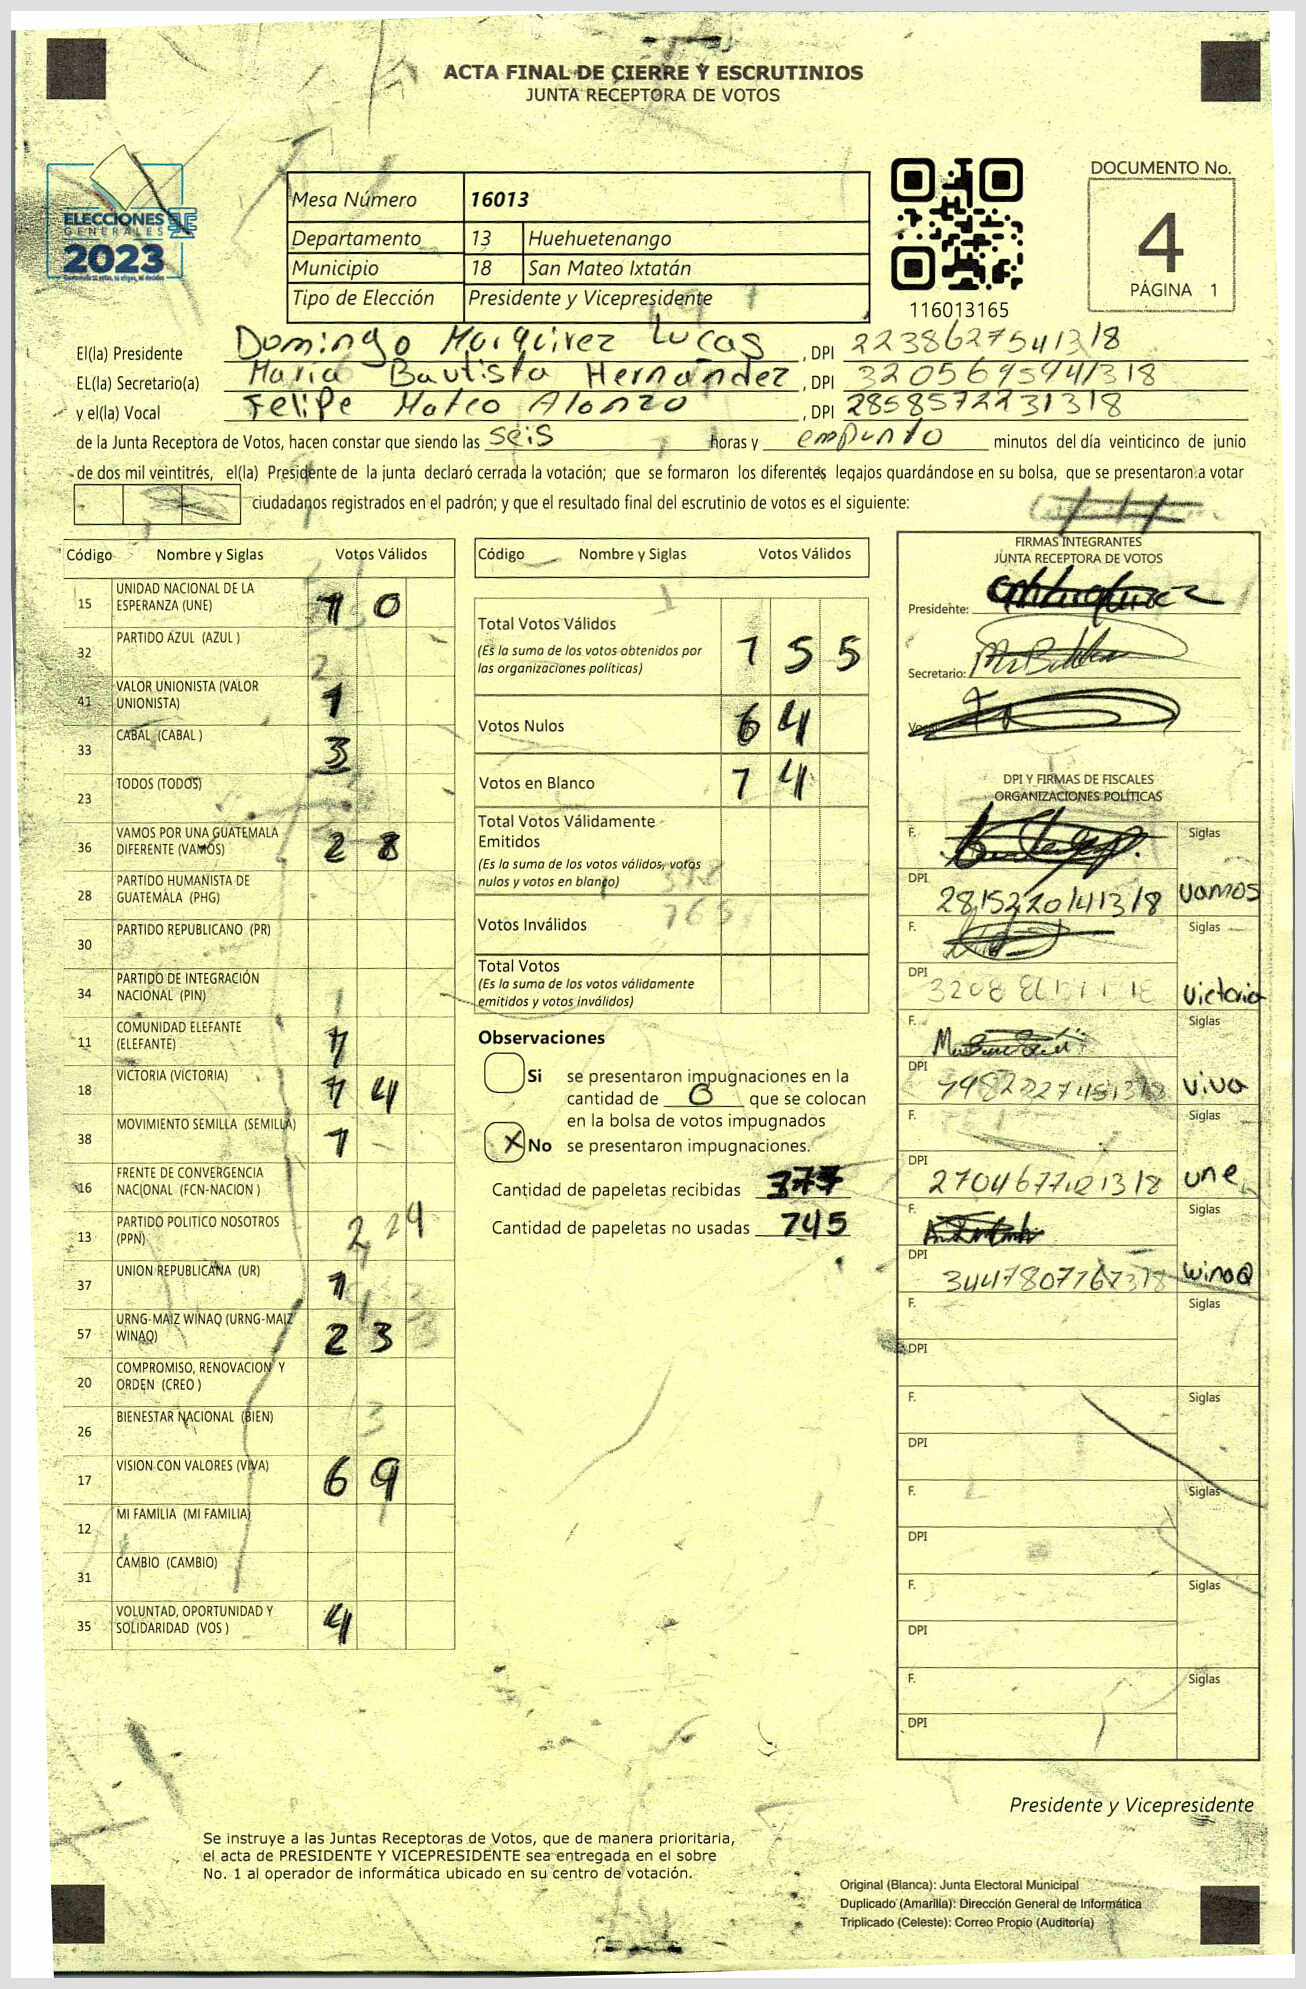 ACTA FINAL DE CIERRE Y ESCRUTINIOS
JUNTA RECEPTORA DE VOTOS
ELECCIONES
GENERALES
2023
Mesa Número 16013
Departamento 13 Huehuetenango
Municipio 18 San Mateo Ixtatán
Tipo de Elección Presidente y Vicepresidente
116013165
DOCUMENTO No.
4
PÁGINA 1
El(la) Presidente Domingo Marquirez Lucas, DPI 2238627541318
EL(la) Secretario(a) Maria Bautista Hernandez, DPI 3205695941318
y el(la) Vocal Felipe Mateo Alonzo, DPI 2858572231318
de la Junta Receptora de Votos, hacen constar que siendo las seis horas y empunto minutos del día veinticinco de junio
de dos mil veintitrés, el(la) Presidente de la junta declaró cerrada la votación; que se formaron los diferentes legajos quardándose en su bolsa, que se presentaron a votar
ciudadanos registrados en el padrón; y que el resultado final del escrutinio de votos es el siguiente:
Código Nombre y Siglas Votos Válidos
15 UNIDAD NACIONAL DE LA ESPERANZA (UNE) 10
32 PARTIDO AZUL (AZUL )
41 VALOR UNIONISTA (VALOR UNIONISTA) 1
33 CABAL (CABAL ) 3
23 TODOS (TODOS)
36 VAMOS POR UNA GUATEMALA DIFERENTE (VAMOS) 28
28 PARTIDO HUMANISTA DE GUATEMALA (PHG)
30 PARTIDO REPUBLICANO (PR)
34 PARTIDO DE INTEGRACIÓN NACIONAL (PIN)
11 COMUNIDAD ELEFANTE (ELEFANTE) 1
18 VICTORIA (VICTORIA) 14
38 MOVIMIENTO SEMILLA (SEMILLA) 1
16 FRENTE DE CONVERGENCIA NACIONAL (FCN-NACION )
13 PARTIDO POLITICO NOSOTROS (PPN)
37 UNION REPUBLICANA (UR) 1
57 URNG-MAIZ WINAQ (URNG-MAIZ WINAQ) 23
20 COMPROMISO, RENOVACION Y ORDEN (CREO )
26 BIENESTAR NACIONAL (BIEN)
17 VISION CON VALORES (VIVA) 69
12 MI FAMILIA (MI FAMILIA)
31 CAMBIO (CAMBIO)
35 VOLUNTAD, OPORTUNIDAD Y SOLIDARIDAD (VOS ) 4
Código Nombre y Siglas Votos Válidos
Total Votos Válidos 155
(Es la suma de los votos obtenidos por
las organizaciones políticas)
Votos Nulos 64
Votos en Blanco 14
Total Votos Válidamente
Emitidos
(Es la suma de los votos válidos, votos
nulos y votos en blanco)
Votos Inválidos
Total Votos
(Es la suma de los votos válidamente
emitidos y votos inválidos)
Observaciones
Si se presentaron impugnaciones en la
cantidad de 0 que se colocan
en la bolsa de votos impugnados
X No se presentaron impugnaciones.
Cantidad de papeletas recibidas 377
Cantidad de papeletas no usadas 145
FIRMAS INTEGRANTES
JUNTA RECEPTORA DE VOTOS
Presidente:
Secretario:
DPI Y FIRMAS DE FISCALES
ORGANIZACIONES POLÍTICAS
F. Siglas
DPI 2815220141318 vamos
F. Siglas
DPI victoria
F. Siglas
DPI viva
F. Siglas
DPI une
F. Siglas
DPI 3447807767318 winaQ
F. Siglas
DPI
F. Siglas
DPI
F. Siglas
DPI
F. Siglas
DPI
F. Siglas
DPI
Presidente y Vicepresidente
Se instruye a las Juntas Receptoras de Votos, que de manera prioritaria,
el acta de PRESIDENTE Y VICEPRESIDENTE sea entregada en el sobre
No. 1 al operador de informática ubicado en su centro de votación.
Original (Blanca): Junta Electoral Municipal
Duplicado (Amarilla): Dirección General de Informática
Triplicado (Celeste): Correo Propio (Auditoría)